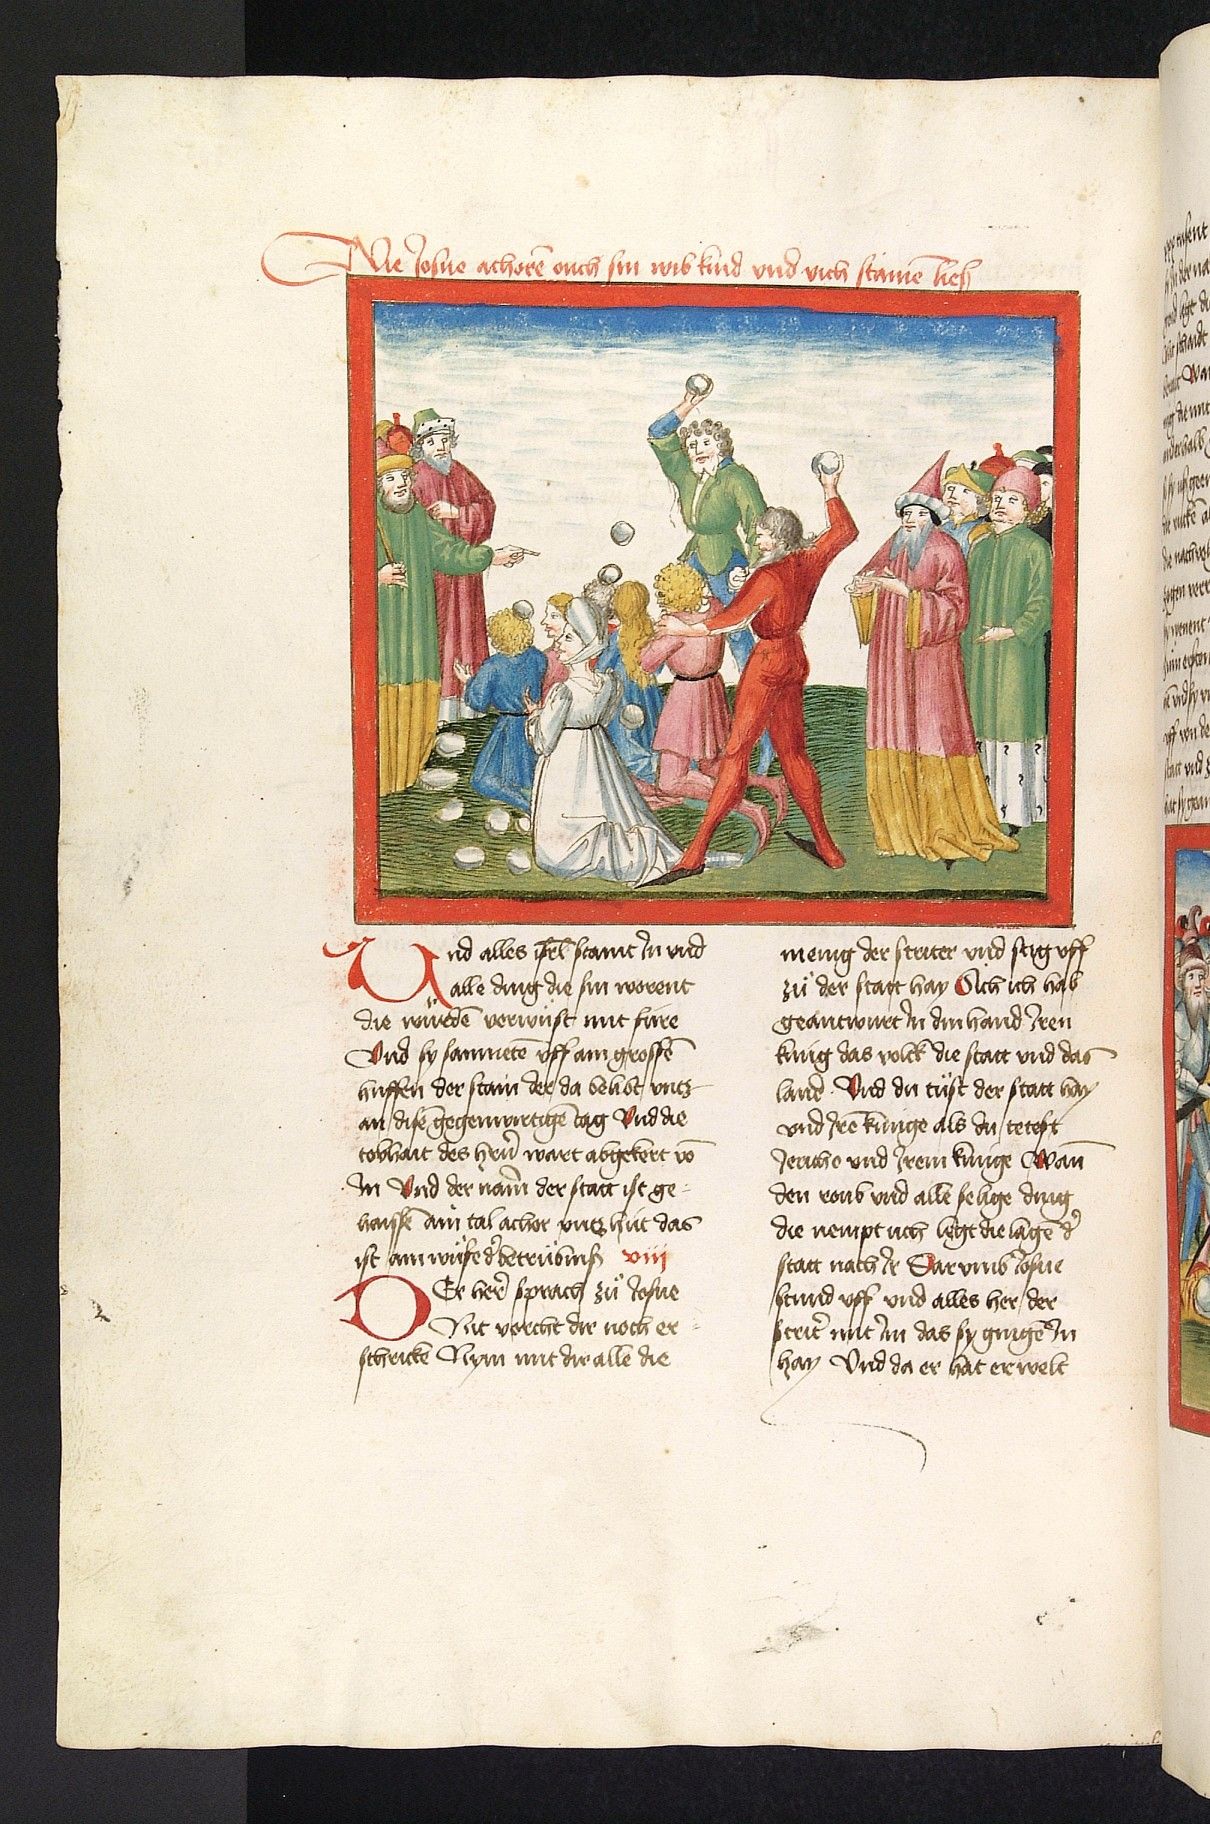 Wie Josue achorē ouch sin wib kind und vich stainē liesz
Und alles isrl̄ staint In und
alle ding die sin worent
die würdē verwüst mit füre
Und sy samnetē uff ain grossē
huffen der stain der da belibt untz
an disē gegenwirtigē tag Und die
tobhait des herrn̄ wart abgekert vō
Im Und der nam̄ der statt ist ge-
haissē ain tal achor untz hüt das
ist ain wüste d' betrübniß viii
Der herr̄ sprach zů Josue
Nit vorcht dir noch er-
schricke Nym mit dir alle die
menig der striter und stig uff
zů der statt hay Sich ich hab
geantwurt In din hand Iren
küng das volck die statt und das
land Und du tüst der statt hay
und Irē künige als du tetest
Jericho und Irem künige Wan̄
den roub und alle selige ding
die nempt uch legt die lagē d'
statt nach Ir Dar umb Josue
stund uff und alles her der
strit' mit Im das sy giengē In
hay Und da er hat erwelt